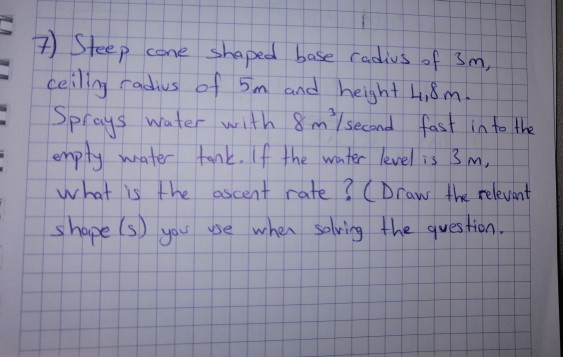 7) Steep cone shaped base radius of 3m,
ceiling radius of 5m and height 4,8m.
Sprays water with 8m³/second fast into the
empty water tank. If the water level is 3m,
what is the ascent rate? (Draw the relevant
shape(s) you use when solving the question.